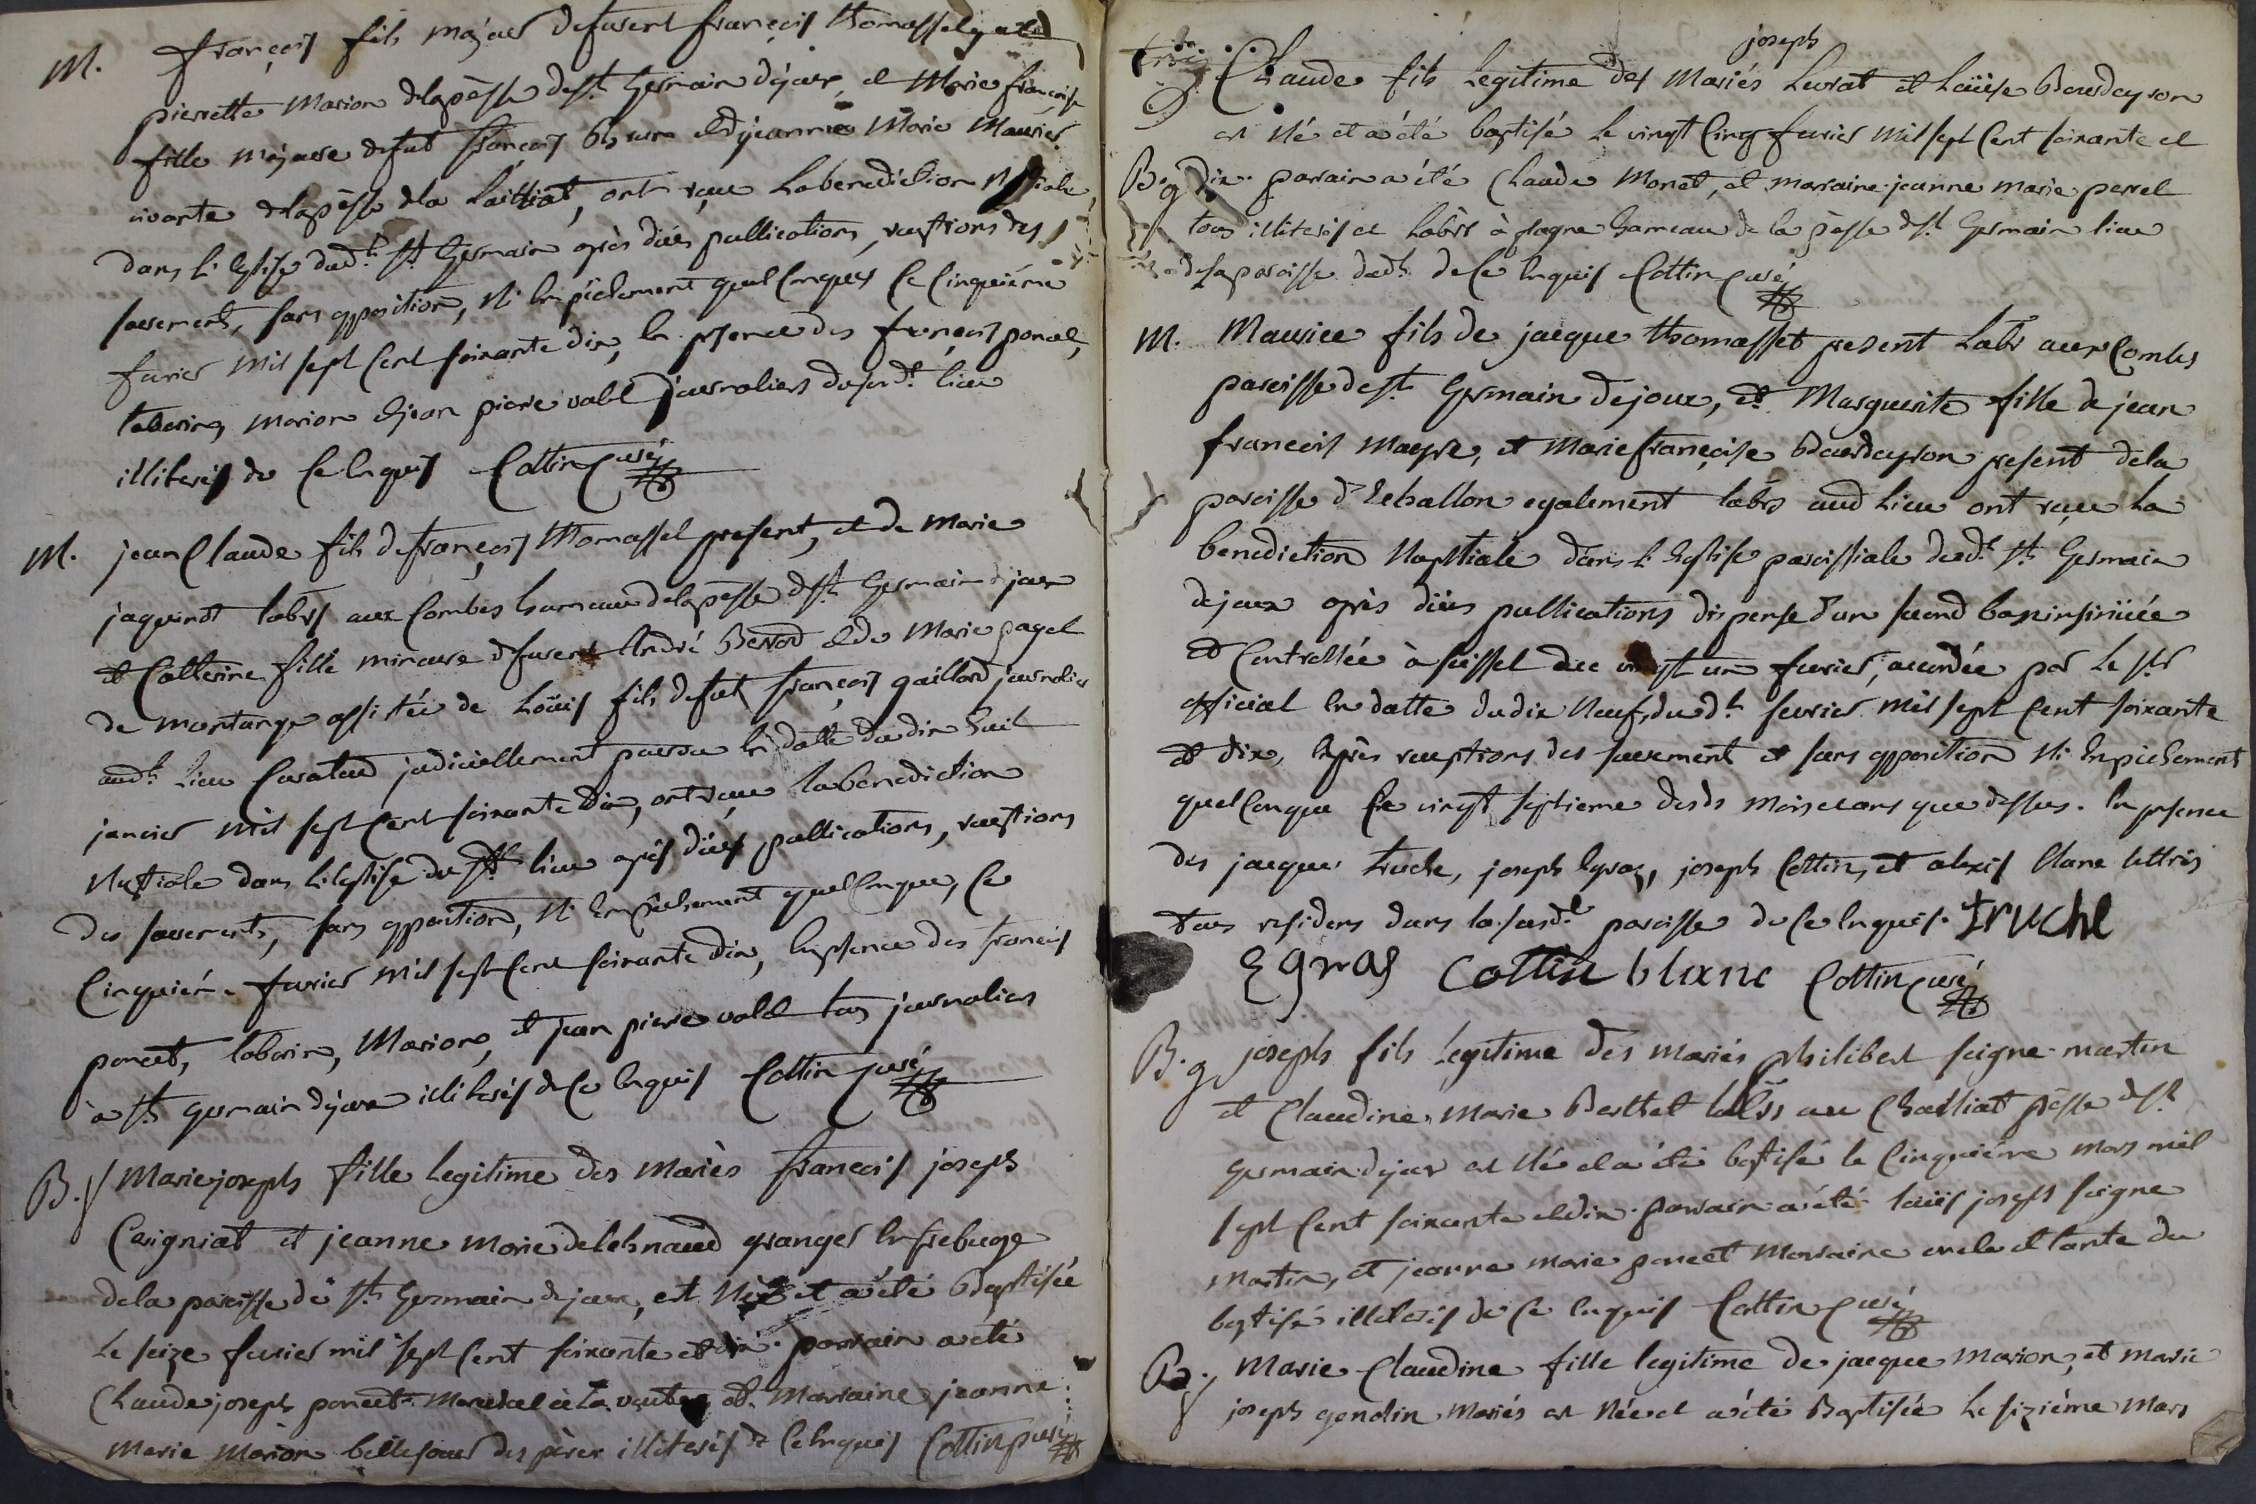 M. françois fils majeur defusent françois thomasset et de
pierrette Marion delapèsse dest Germain dejoux, et Marie françoise
fille majeure defut françois et djeanne Marie Maurier
vivante delapèsse dela Lattiat, ont reçue Labenediction Nuptiale
dans L'eglise dudt St Germain après dües publications, receptions des
serements, sans opposition, Ni Enpêchement quelConques Ce Cinquième
fevrier Mil sept Cent soixante dix, En présence des françois poncet,
taborin, Marion et jean pierre vallet journaliers dusurdt lieu
illiterés de Ce Enquis Cottin Curé
M. jean Claude fils defrançois thomasset present, et de Marie
jaquinot labrs aux Combes hameau delapèsse dest Germain djoux
et Catherine fille mineure defusent André Berrod et de Marie pagel
de montange assistée de Loüis fils defut françois gaillard journalier
audt Lieu Curateur judiciellement pourvu En datte du dix huit
janvier Mil sept Cent soixante dix, ont reçue labenediction
Nuptiale dans L'eglise du st lieu après dües publications, receptions
des serements, sans opposition, Ni Enpêchement quelConque, Ce
Cinquiéme fevrier Mil sept Cent soixante dix, En présence des francois
poncet, taborin, Marion, et jean pierre vallet tous journaliers
à St germain djoux illiterés de Ce Enquis Cottin Curé
B. f Marie joseph fille Legitime des Mariés francois joseph
Caigniat et jeanne Marie granger En frebuge
dela paroisse de St Germain dejoux, est Née et a été Baptisée
Le seize fevrier mil sept Cent soixante et dix. parrain a été
Claude joseph poncet Marechal à La voute, et Marraine jeanne
Marie Marion belle soeur des pères illiterés de Ce Enquis Cottin Curé
joseph
Claude fils Legitime des Mariés Levrat et Loüise Bourdeyron
est Né et a été baptisé Le vingt Cinq fevrier Mil sept Cent soixante et
B. g dix. parrain a été Claude Monet, et marraine jeanne marie perret
tous illiterés et Labrs à plagne hameau de la pèsse dst Germain lieu
delaparoisse dudt de Ce Enquis Cottin Curé
M. Maurice fils de jacque thomasset present Labr aux Combes
paroisse dest Germain dejoux, et Marguerite fille de jean
francois Mayre, et Marie françoise Bourdeyron present dela
paroisse d'Echallon egalement labrs aud Lieu ont reçue La
benediction Nuptiale dans L'Eglise paroissiale dudt st Germain
dejoux après dües publications dispense d'un second ban insinüée
et Controllée à seissel du vingt un fevrier, accordée par Le sr
official En datte du dix Neuf dudt fevrier mil sept Cent soixante
et dix, après receptions des serement et sans opposition Ni Enpêchement
quelConque Ce vingt septieme desds mois et ans que dessus. En présence
des jacque truche, joseph Egraz, joseph Cottin, et alexis blanc lettrés
tous residens dans la susdte paroisse de Ce Enquis. truche
Egras Cottin blanc Cottin Curé
B. g joseph fils Legitime des mariés philibert seigne martin
et Claudine Marie Berthet labrs au Chattiat pèsse dst
Germain djoux est Né et a été baptisé le Cinquième mars mil
sept Cent soixante et dix. parrain a été Loüis joseph seigne
Martin, et jeanne marie poncet Marraine oncle et tante du
baptisé illiterés de Ce Enquis Cottin Curé
B. f Marie Claudine fille legitime de jacque Marion, et marie
joseph gondin Mariés est Née et a été Baptisée Le sixiéme Mars